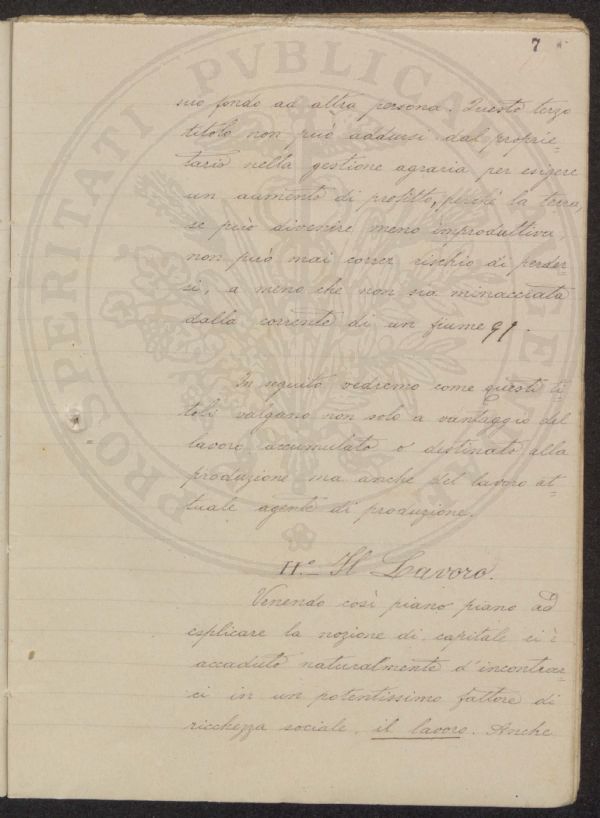 7
suo fondo ad altra persona. Questo terzo
titolo non può addursi dal proprie-
tario nella gestione agraria per esigere
un aumento di profitto, perchè la terra,
se può divenire meno improduttiva,
non può mai correr rischio di perder
si, a meno che non sia minacciata
dalla corrente di un fiume 91.
In seguito vedremo come questi ti-
toli valgano non solo a vantaggio del
lavoro accumulato o destinato alla
produzione ma anche del lavoro at-
tuale agente di produzione.
II.° Il Lavoro.
Venendo così piano piano ad
esplicare la nozione di capitale ci è
accaduto naturalmente d'incontrar-
ci in un potentissimo fattore di
ricchezza sociale, il lavoro. Anche
PROSPERITATI PVBLICAE